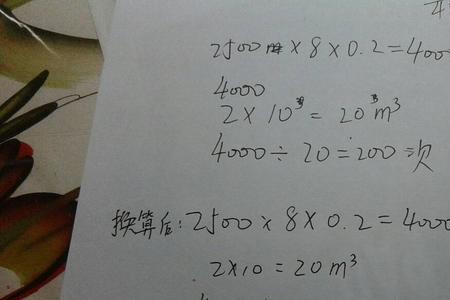 2500m×8×0.2=4000
4000
2×10³=20m³
4000÷20=200次
换算后:2500×8×0.2=4000
2×10=20m³